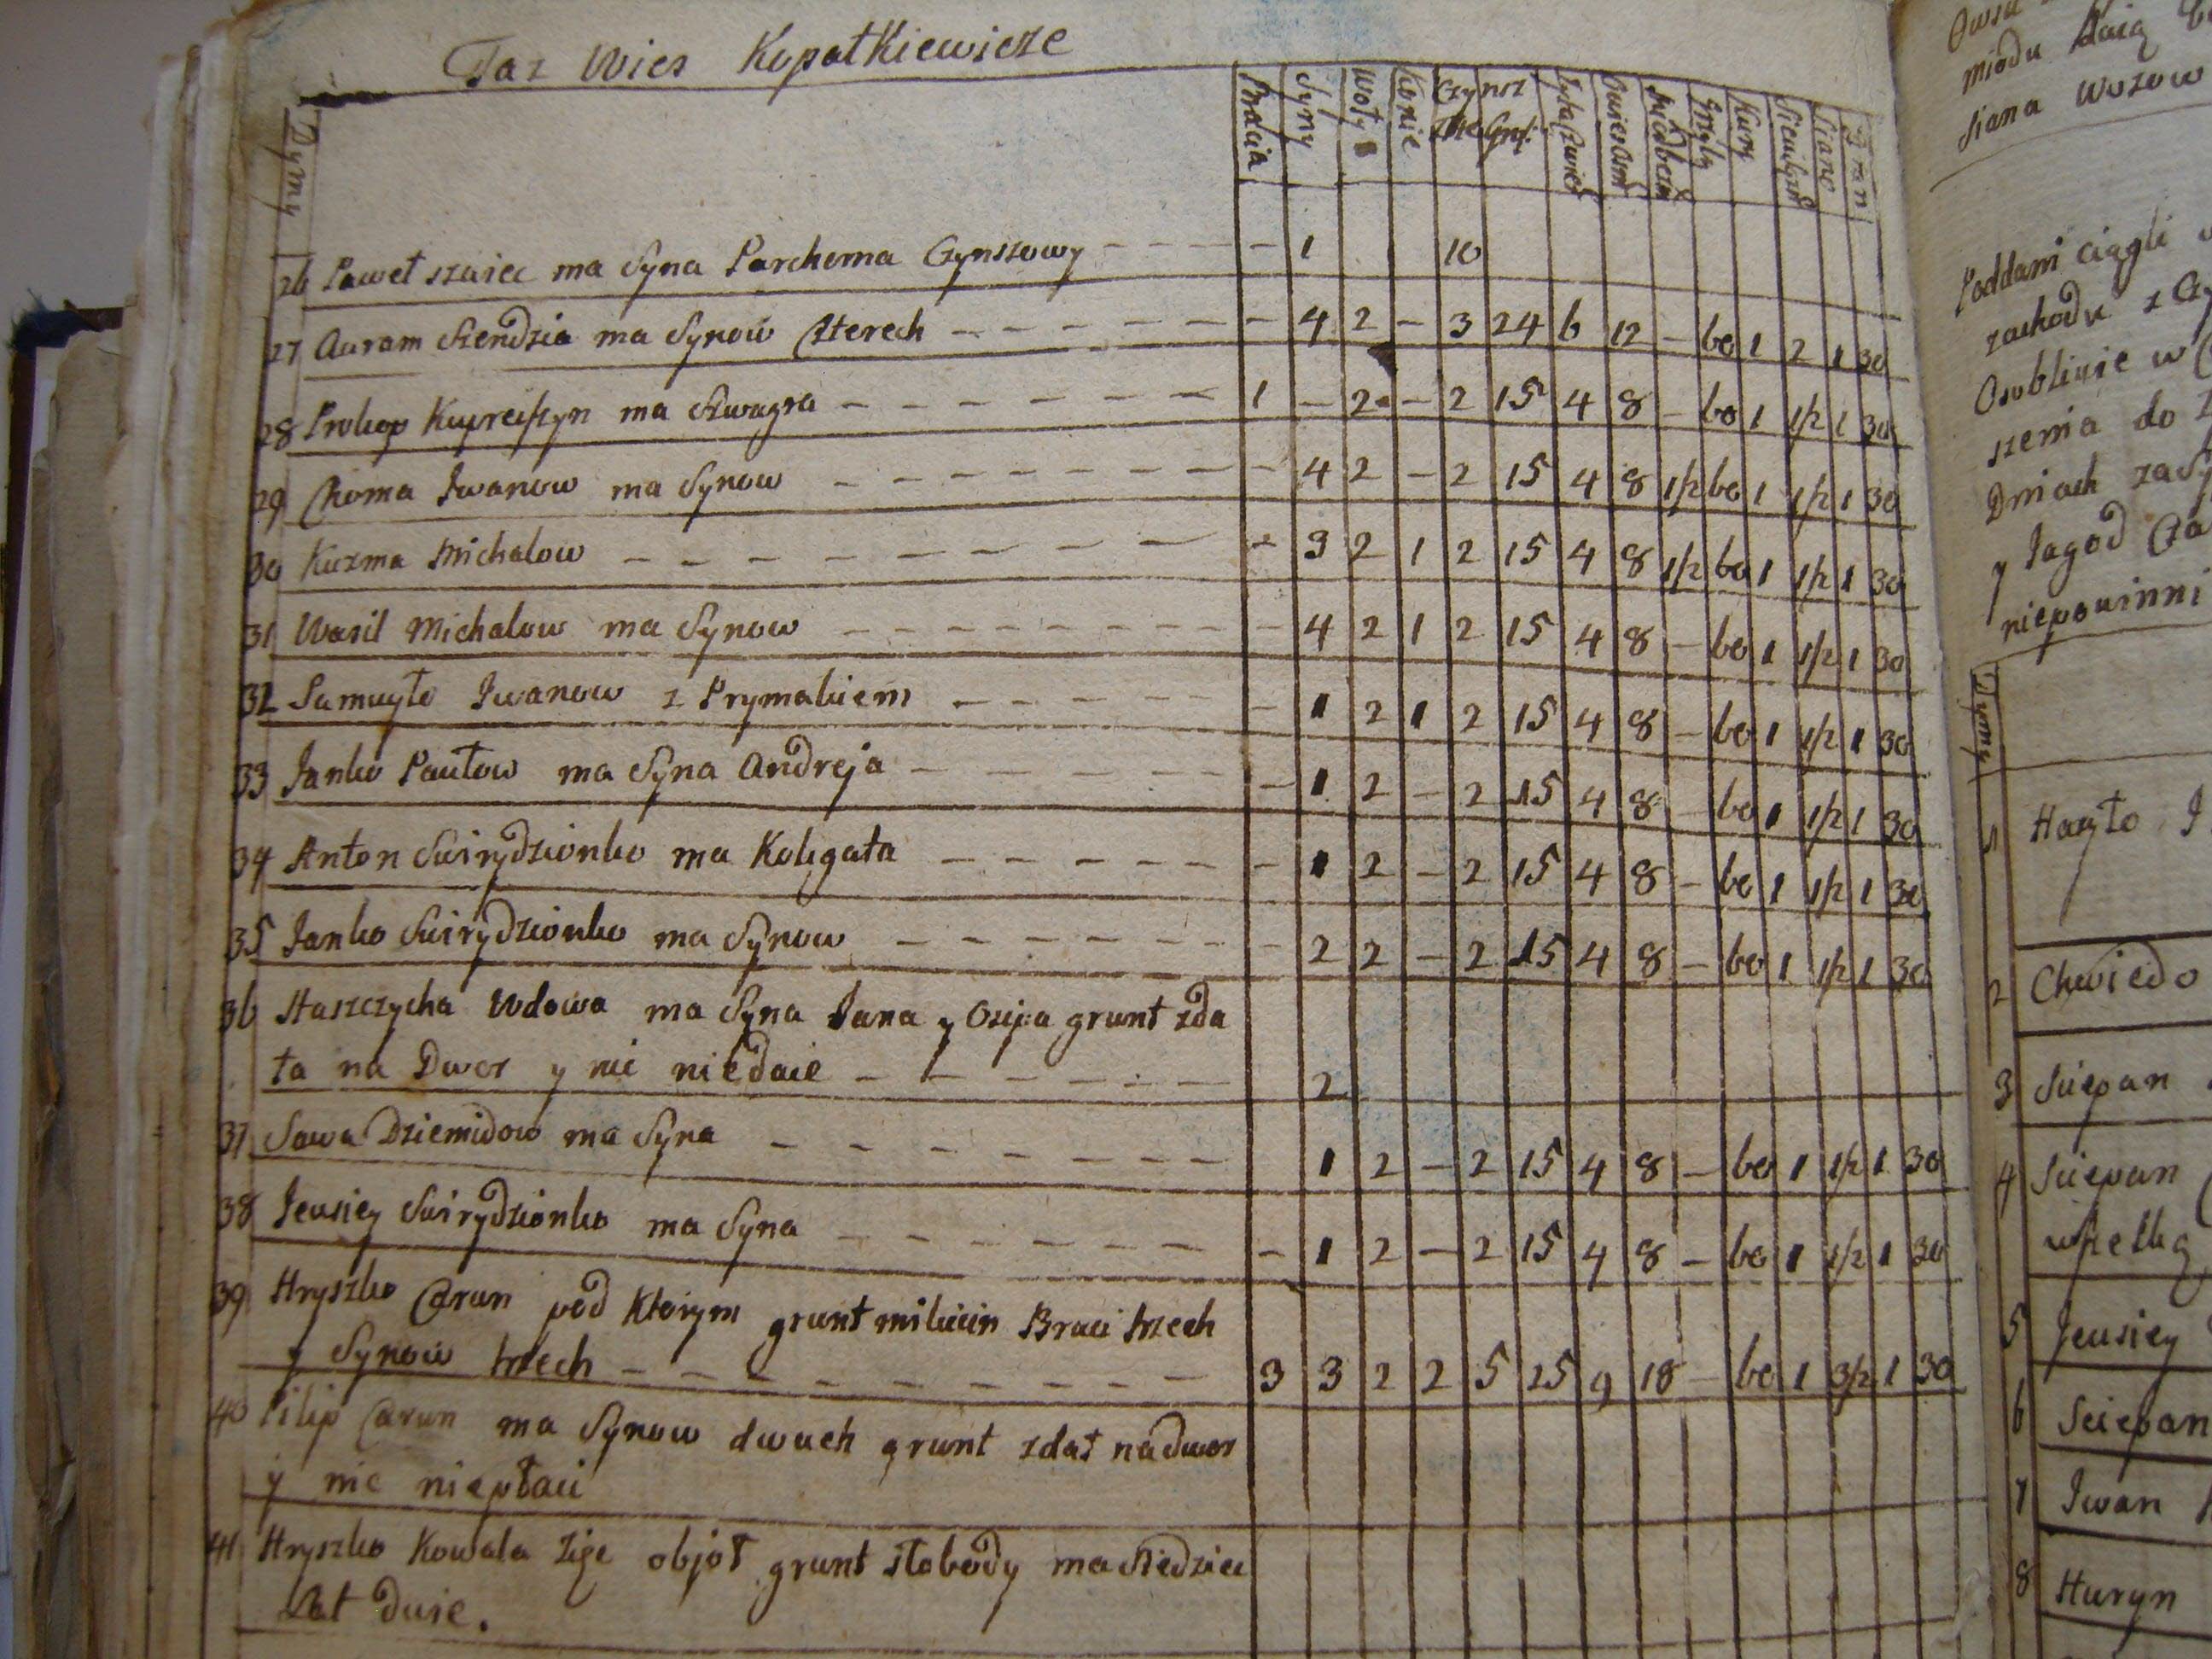 Taz Wies Kopatkiewicze
Dymy Bracia Syny Woły Konie Czynsz Grzyby Kury Siano
26 Paweł szwiec ma Syna Parchoma Czynszowy - - - - - 1 10
27 Auram Szendzia ma Synow Czterech - - - - - - - - 4 2 - 3 24 6 12 - be 1 2 1 30
28 Prokop ma Szwagra - - - - - - - - 1 - 2 - 2 15 4 8 - be 1 1/2 1 30
29 Choma Iwanow ma Synow - - - - - - - - - 4 2 - 2 15 4 8 1/2 be 1 1/2 1 30
30 Kuzma Michalow - - - - - - - - - 3 2 1 2 15 4 8 1/2 be 1 1/2 1 30
31 Wasil Michalow ma Synow - - - - - - - - - 4 2 1 2 15 4 8 - be 1 1/2 1 30
32 Samuyło Iwanow z Prymakiem - - - - - - 1 2 1 2 15 4 8 - be 1 1/2 1 30
33 Janko Pautow ma Syna Andreja - - - - - - - 1 2 - 2 15 4 8 - be 1 1/2 1 30
34 Anton Swirydzionko ma Koligata - - - - - - - 1 2 - 2 15 4 8 - be 1 1/2 1 30
35 Janko Swirydzionko ma Synow - - - - - - - - 2 2 - 2 15 4 8 - be 1 1/2 1 30
36 Staszczycha Wdowa ma Syna Jana y Osipa grunt zda
ła na Dwor y nic niedaie - - - - - - 2
37 Sawa Dziemidow ma Syna - - - - - - - 1 2 - 2 15 4 8 - be 1 1/2 1 30
38 Jeusiey Swirydzionko ma Syna - - - - - - - 1 2 - 2 15 4 8 - be 1 1/2 1 30
39 Hryszko Carun pod Ktorym grunt Braci trzech
y Synow trzech - - - - - - - - - 3 3 2 2 5 25 9 18 - be 1 3/2 1 30
40 Pilip Carun ma Synow dwuch grunt zdał nadwor
y nic niepłaci
41 Hryszko Kowala Zięc objoł grunt słobody ma siedziec
Lat dwie.
miodu
siana Wozow
Poddani ciągli
zachodu z
Osobliwie w
szenia do
Dniach
y Jagod
niepowinni
Dymy
1
2 Chwiedo
3 Sciepan
4 Sciepan
5 Jeusiey
6 Sciepan
7 Iwan
8 Huryn